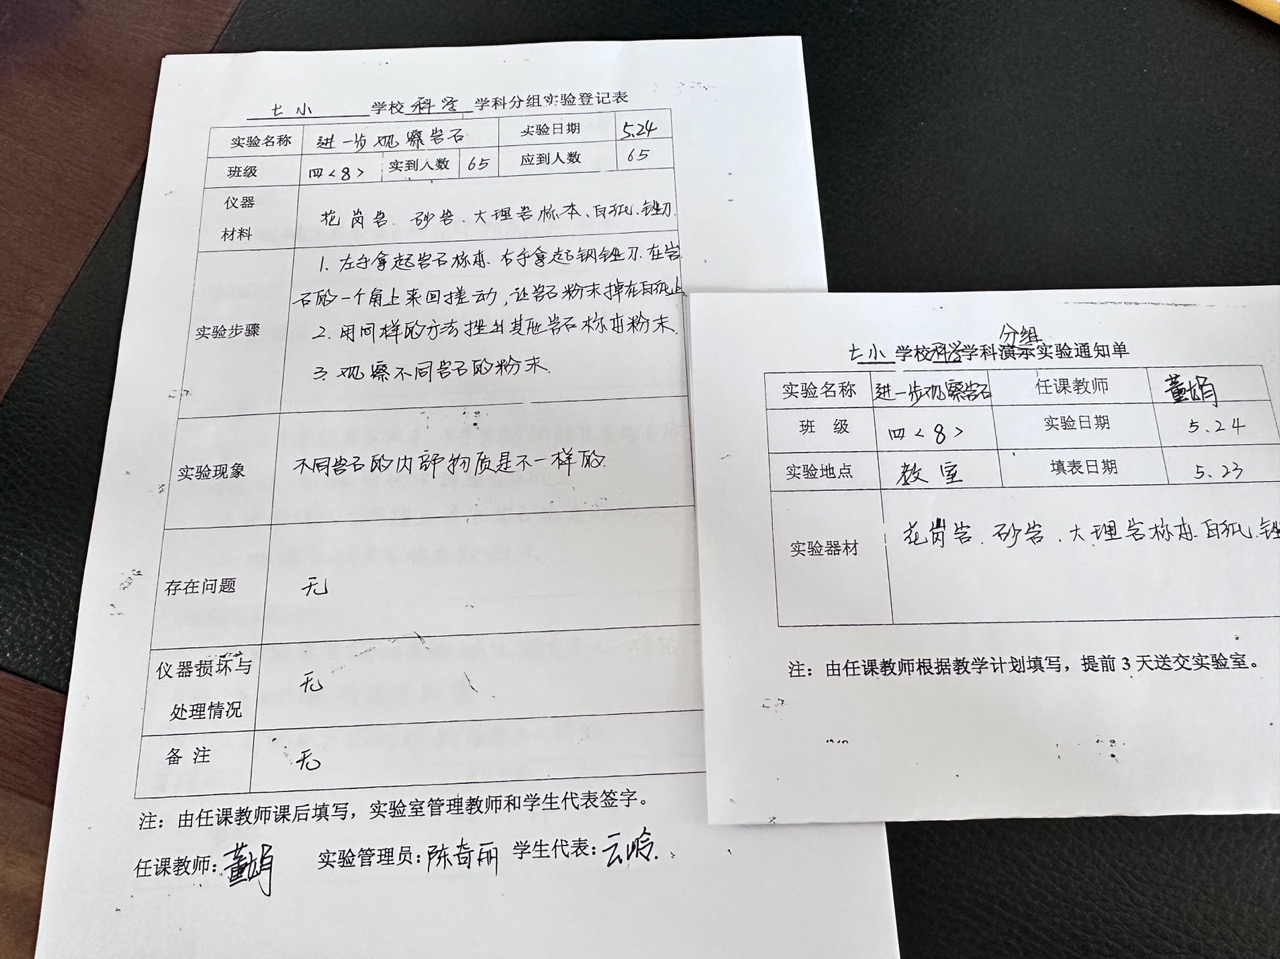 七小 学校 科学 学科分组实验登记表
实验名称 进一步观察岩石 实验日期 5.24
班级 四<8> 实到人数 65 应到人数 65
仪器
材料
花岗岩、砂岩、大理岩标本、白纸、锉刀
实验步骤
1. 左手拿起岩石标本、右手拿起钢锉刀、在岩
石的一个角上来回搓动,让岩石粉末掉在白纸上
2. 用同样的方法挫出其他岩石标本粉末.
3. 观察不同岩石的粉末.
实验现象 不同岩石的内部物质是不一样的.
存在问题 无
仪器损坏与
处理情况
无
备 注 无
注:由任课教师课后填写,实验室管理教师和学生代表签字。
任课教师:董娟 实验管理员:陈奇丽 学生代表:云晗.
分组
七小 学校科学学科演示实验通知单
实验名称 进一步观察岩石 任课教师 董娟
班 级 四<8> 实验日期 5.24
实验地点 教室 填表日期 5.23
实验器材 花岗岩、砂岩、大理岩标本、白纸、锉
注:由任课教师根据教学计划填写,提前 3 天送交实验室。